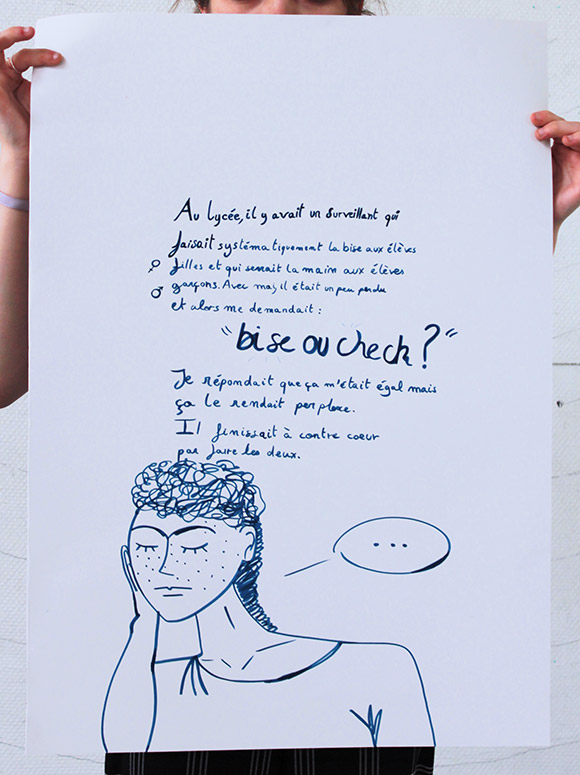 Au lycée, il y avait un surveillant qui
faisait systématiquement la bise aux élèves
♀ filles et qui serrait la main aux élèves
♂ garçons. Avec moi, il était un peu perdu
et alors me demandait :
"bise ou check ?"
Je répondait que ça m'était égal mais
ça le rendait perplexe.
Il finissait à contre coeur
par faire les deux.
...